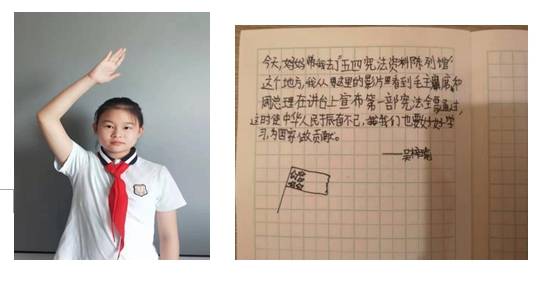 今天,妈妈带我去了"五四宪法资料陈列馆"
这个地方,我从那里的影片里看到毛主席和
周总理在讲台上宣布第一部宪法全票通过,
这时使中华人民振奋不已,我们也要好好学
习,为国家做贡献。